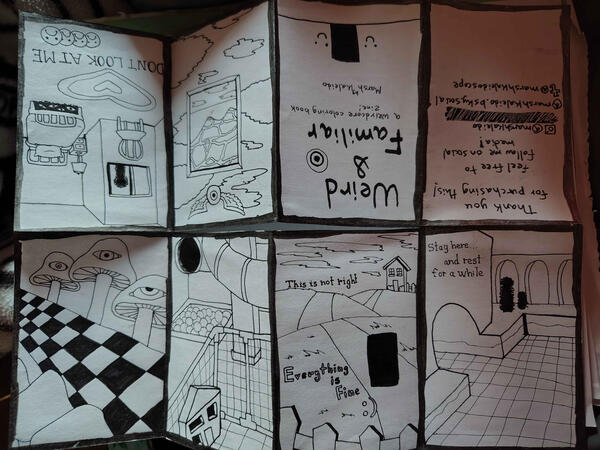 DONT LOOK AT ME
Weird
&
Familiar
a weirdcore coloring book
zine!
Marsh Kaleido
Thank you
for purchasing this!
feel free to
follow me on social
media!
@marshkaleido
@marshkaleido.bsky.social
@marshkaleidoscope
This is not right
Everything
is
Fine
Stay here...
and rest
for a while